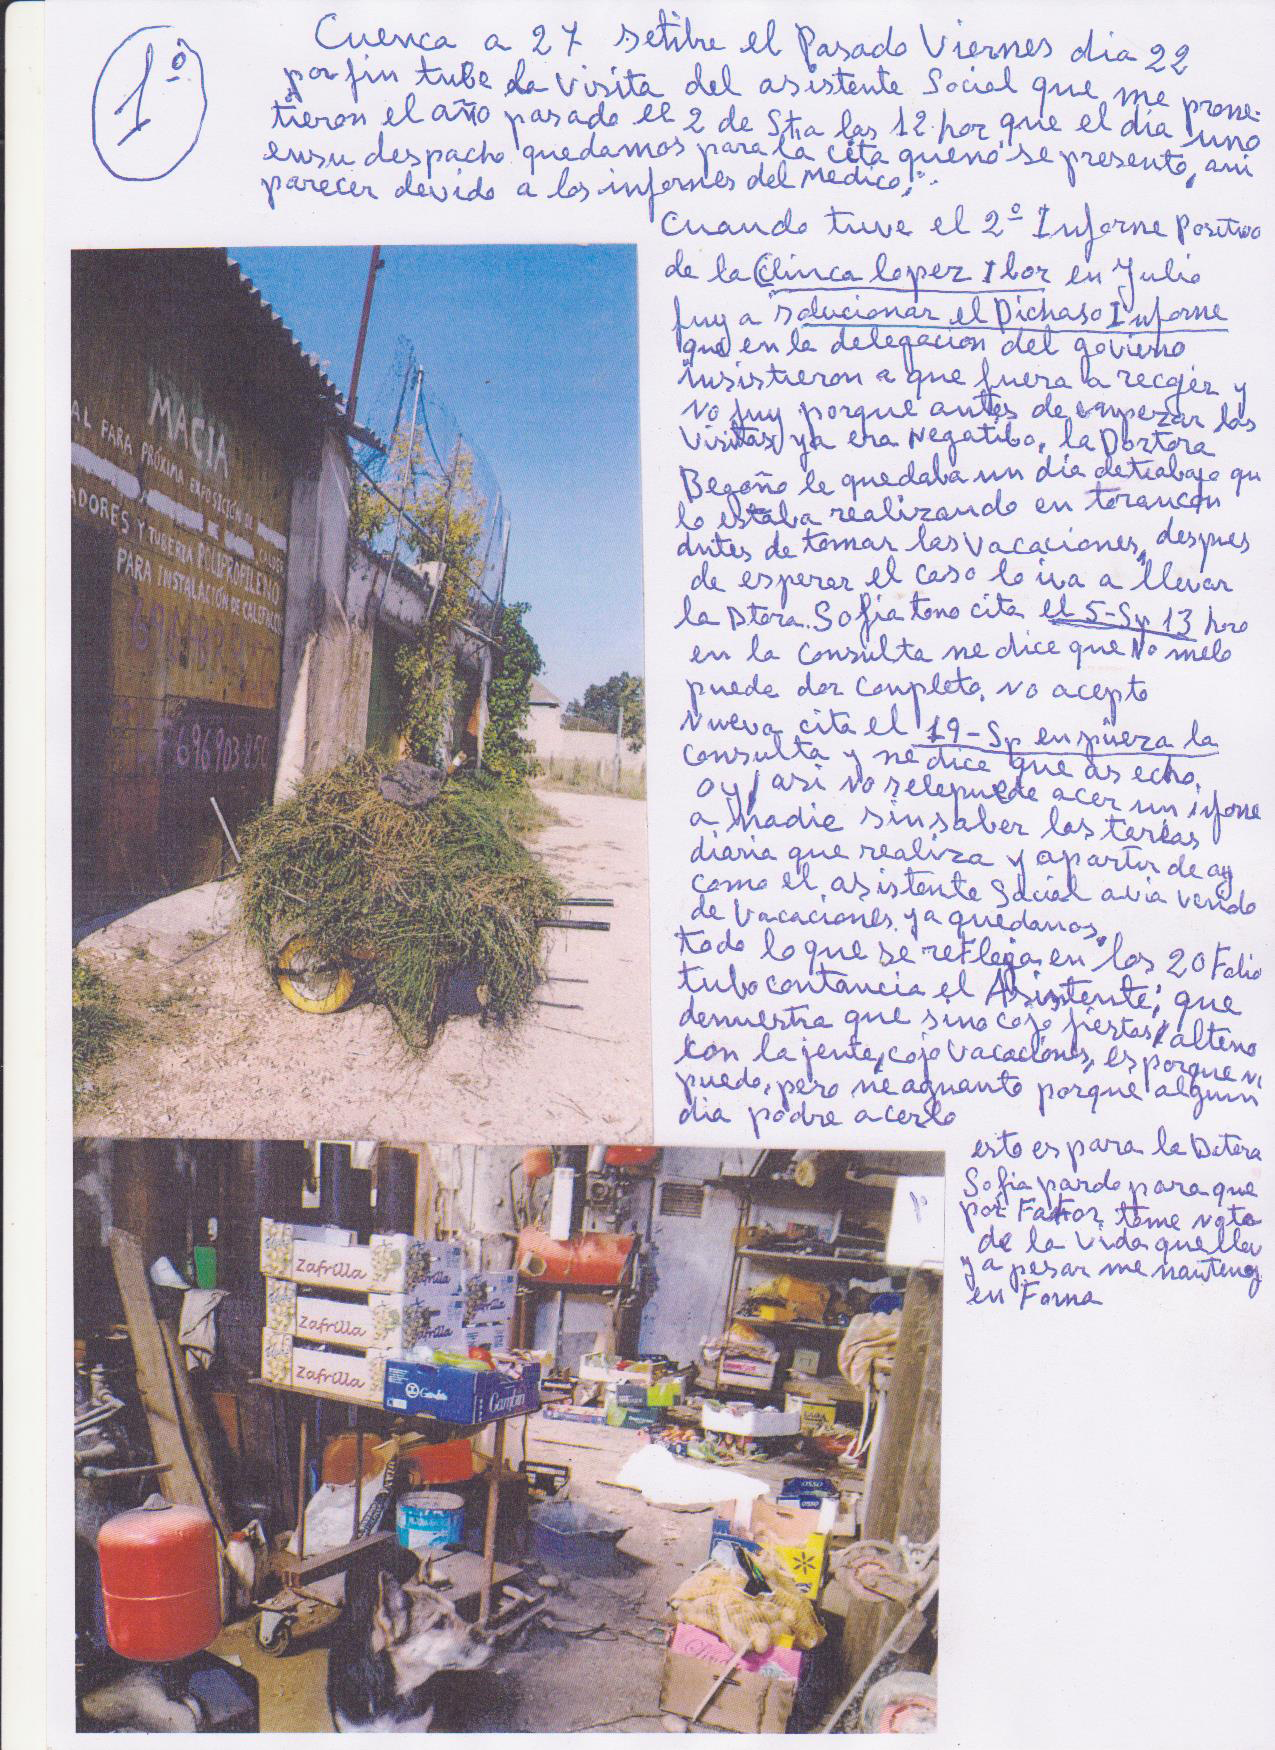 1º
Cuenca a 27 setibre el Pasado Viernes dia 22
por fin tube la Visita del asistente Social que me prome-
tieron el año pasado el 2 de Stra las 12 hor que el dia uno
ensu despacho quedamos para la cita queno se presento, ami
parecer devido a los informes del Medico,
Cuando tuve el 2º Informe Positivo
de la Clinca lopez Ibor en Julio
fuy a solucionar el Dichoso Informe
que en la delegacion del govierno
insistieron a que fuera a recger y
no fuy porque antes de empezar las
Visitas ya era Negatibo, la Doctora
Begoño le quedaba un dia detrabajo qu
lo estaba realizando en torancon
antes de tomar las vacaciones, despues
de esperar el caso lo iva a llevar
la Dtora. Sofia tomo cita el 5-Sp 13 hora
en la consulta me dice que No melo
puede dar conpleto, no acepto
Nueva cita el 19-Sp enpieza la
consulta y me dice que as echo
oy, asi no selepuede acer un ifone
a nadie sinsaber las tareas
diaria que realiza y apartir de ay
como el asistente Social avia venido
de Vacaciones ya quedamos,
todo lo que se reflega en los 20 Folio
tubo contancia el Asistente; que
demuestra que sino cojo fiestas, alteno
con la jente, cojo vacaciones, es porque n
puedo, pero me aguanto porque algun
dia podre acerlo
esto es para la Dctora
Sofia pardo para que
por Fabor tome nota
de la Vida que llev
y a pesar me manteng
en Forma
MACIA
AL PARA PRÓXIMA EXPOSICIÓN DE
CALDER
ADORES Y TUBERIA POLIPROPILENO
PARA INSTALACIÓN DE CALEFACCI
696903-850
Zafrilla
Zafrilla
Zafrilla
Zafrilla
Zafrilla
Gambin